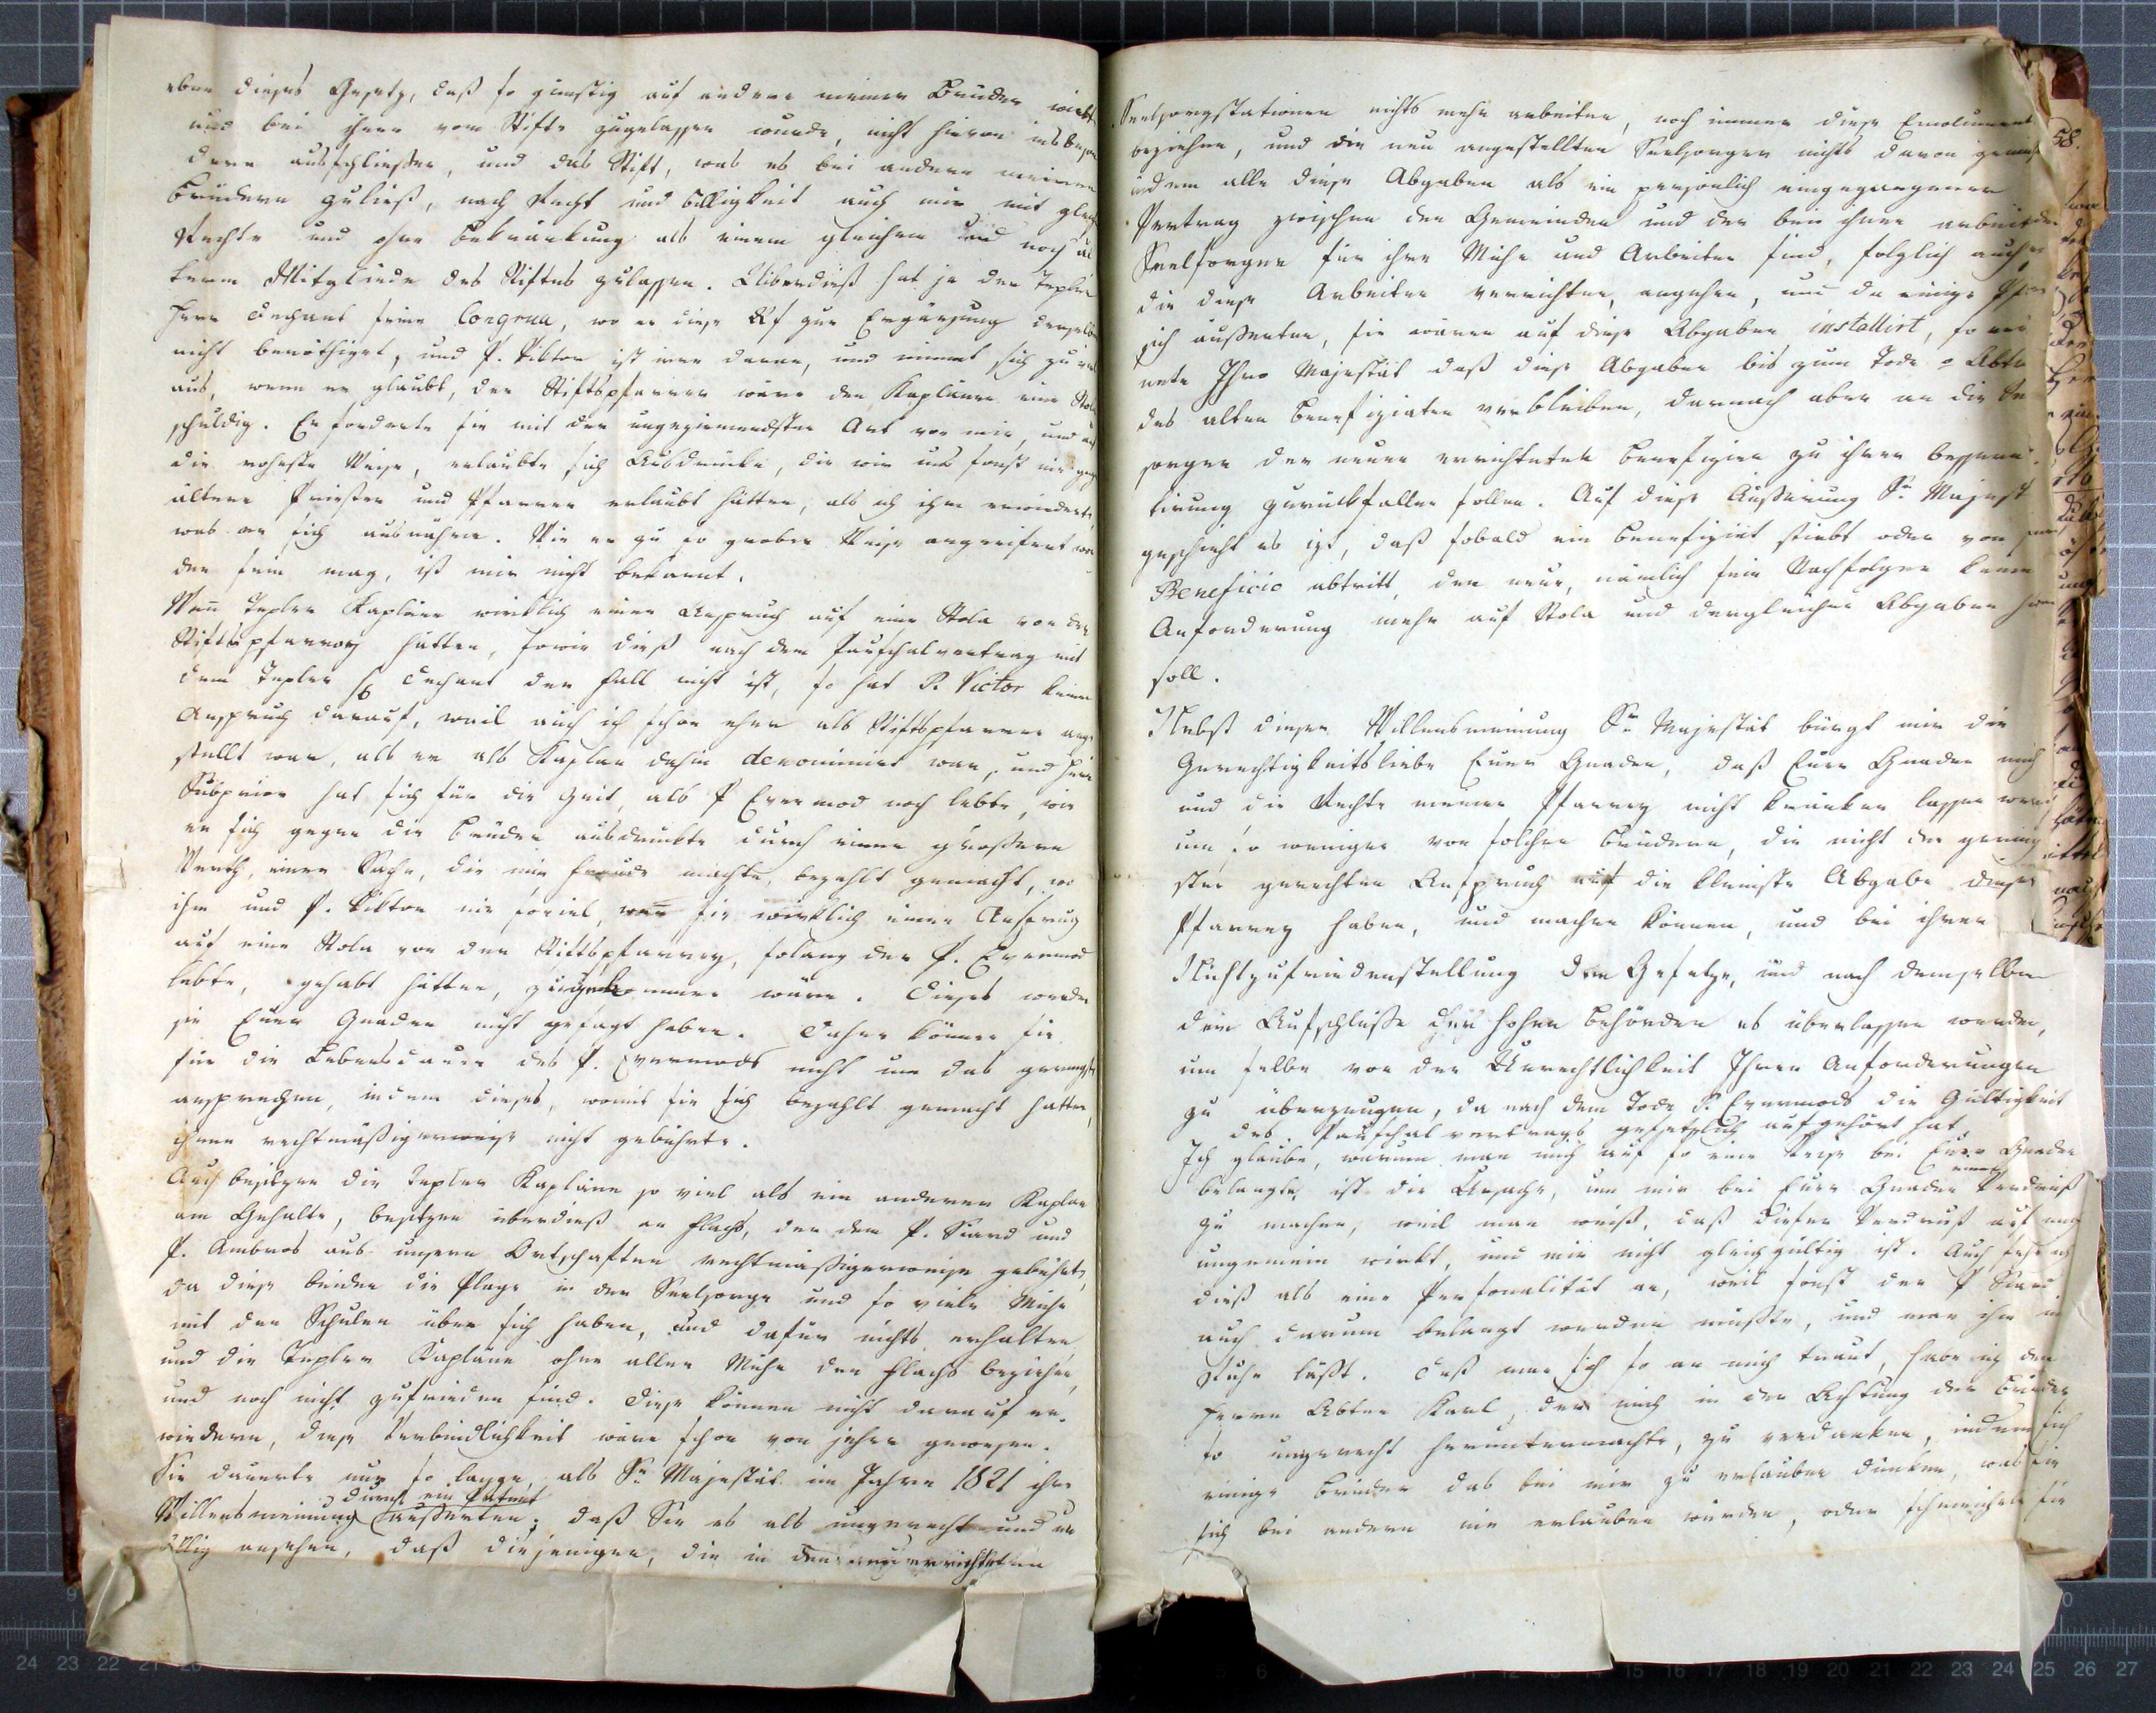 eben dieses Gesetz, daß so günstig auf andere meiner Brüder wirkt
und bei ihnen vom Stifte zugelassen wurde, nicht hievon insbeson
dere ausschließen, und das Stift, was es bei andern meinen
Brüdern zuließ, nach Recht und Billigkeit auch mir mit gleich
Rechte und ohne Bekränkung als einem gleichen und noch äl
teren Mitgliede des Stiftes zulassen. Uiberdieß hat ja der Tepler
Herr Dechant seine Congrua, wo er diese xf zur Ergänzung derselben
nicht benöthiget, und P. Viktor ist irre daran, und nimmt sich zu viel
aus, wenn er glaubt, der Stiftspfarrer wäre den Kaplänen eine Stola
schuldig. Er forderte sie mit der ungeziemendsten Art von mir, und auf
die roheste Weise, erlaubte sich Ausdrücke, die wir uns sonst nie gegen
ältere Priester und Pfarrer erlaubt hätten, als ich ihm erwiederte,
was er sich ausnähme. Wie er zu so grober Weise angeeifert wor
den sein mag, ist mir nicht bekannt.
Wenn Tepler Kapläne wirklich einen Anspruch auf eine Stola von der
Stiftspfarrey hätten, sowie dieß nach dem Pauschalvertrag mit
dem Tepler H Dechant der Fall nicht ist, so hat P. Victor keinen
Anspruch darauf, weil auch ich schon eher als Stiftspfarrer ange
stellt war, als er als Kaplan dahin denominirt war, und Herr
Subprior hat sich für die Zeit, als P Evermod noch lebte, wie
er sich gegen die Brüder ausdrückte durch einen größeren
Werth, einer Sache, die mir Freude machte, bezahlt gemacht, wo
ihm und P. Viktor nie soviel, wenn sie wirklich einen Anspruch
auf eine Stola von der Stiftspfarrey, solang der P. Evermod
lebte, gehabt hätten, zugekommen wäre. Dieses werden
sie Euer Gnaden nicht gesagt haben. Daher können sie
für die Lebensdauer des P. Evermods nicht um das geringste
ansprechen, indem dieses, womit sie sich bezahlt gemacht hatten,
ihnen rechtmäßigerweise nicht gebührte.
Auch besitzen die Tepler Kapläne so viel als ein anderer Kaplan
am Gehalte, besitzen überdieß an Flachs, der dem P. Siard und
P. Ambros aus unsern Ortschaften rechtmäßigerweise gebührt,
da diese beiden die Plage in der Seelsorge und so viele Mühe
mit den Schulen über sich haben, und dafür nichts erhalten,
und die Tepler Kapläne ohne aller Mühe den Flachs beziehen,
und noch nicht zufrieden sind. Diese können nicht darauf er-
wiedern, diese Verbindlichkeit wäre schon von jeher gewesen.
Sie dauerte nur so lange, als Sr Majestät im Jahre 1821 ihre
durch ein Patent
Willensmeinung äußerten; daß Sie es als ungerecht und un
billig ansehen, daß diejenigen, die in den neu errichteten
Seelsorgstationen nichts mehr arbeiten, noch immer diese Emolument
beziehen, und die neu angestellten Seelsorger nichts davon
indem alle diese Abgaben als ein persönlich eingegangener
Vertrag zwischen den Gemeinden und der bei ihnen arbeitenden
Seelsorger für ihre Mühe und Arbeiten sind, folglich auch
die diese Arbeiten verrichten, angehen, und da einige
sich äußerten, sie wären auf diese Abgaben installirt, so
nete Ihre Majestät daß diese Abgaben bis zum Tode
des alten Benefiziaten verbleiben, darnach aber an die
sorger der neuen errichteten Benefizien zu ihrer bessern
tirung zurückfallen sollen. Auf diese Äußerung Sr Majest
geschieht es izt, daß sobald ein Benefiziat stirbt oder von
Beneficio abtritt, der neue, nämlich sein Nachfolger keine
Anforderung mehr auf Stola und dergleichen Abgaben
soll.
Nebst dieser Willensmeinung Sr Majestät bürgt mir die
Gerechtigkeitsliebe Euer Gnaden, daß Euer Gnaden mich
und die Rechte meiner Pfarrey nicht kränken lassen werd
um so weniger von solchen Brüdern, die nicht den gering
sten gerechten Anspruch auf die kleinste Abgabe dieser
Pfarrey haben, und machen können, und bei ihrer
Nichtzufriedenstellung dem Gesetze, und nach demselben
dem Aufschluße der hohen Behörden es überlassen werden,
um selbe von der Unrechtlichkeit Ihrer Anforderungen
zu überzeugen, da nach dem Tode P. Evermods die Gültigkeit
des Pauschalvertrags gesetzlich aufgehört hat.
Ich glaube, warum man mich auf so eine Weise bei Euer Gnaden
belangte, ist die Ursache, um mir bei Euer Gnaden einen Verdruß
zu machen, weil man weiß, daß dieser Verdruß auf mich
ungemein wirkt, und mir nicht gleichgültig ist. Auch sehe ich
dieß als eine Personalität an, weil sonst der P Siard
auch darum belangt werden müßte, und man ihn in
Ruhe läßt. Daß man sich so an mich traut, habe ich den
Herrn Abten Karl, der mich in der Achtung der Brüder
so ungerecht heruntermachte, zu verdanken, indem sich
einige Brüder das bei mir zu erlauben dünken, was sie
sich bei andern nie erlauben würden, oder schmeicheln sie
58.